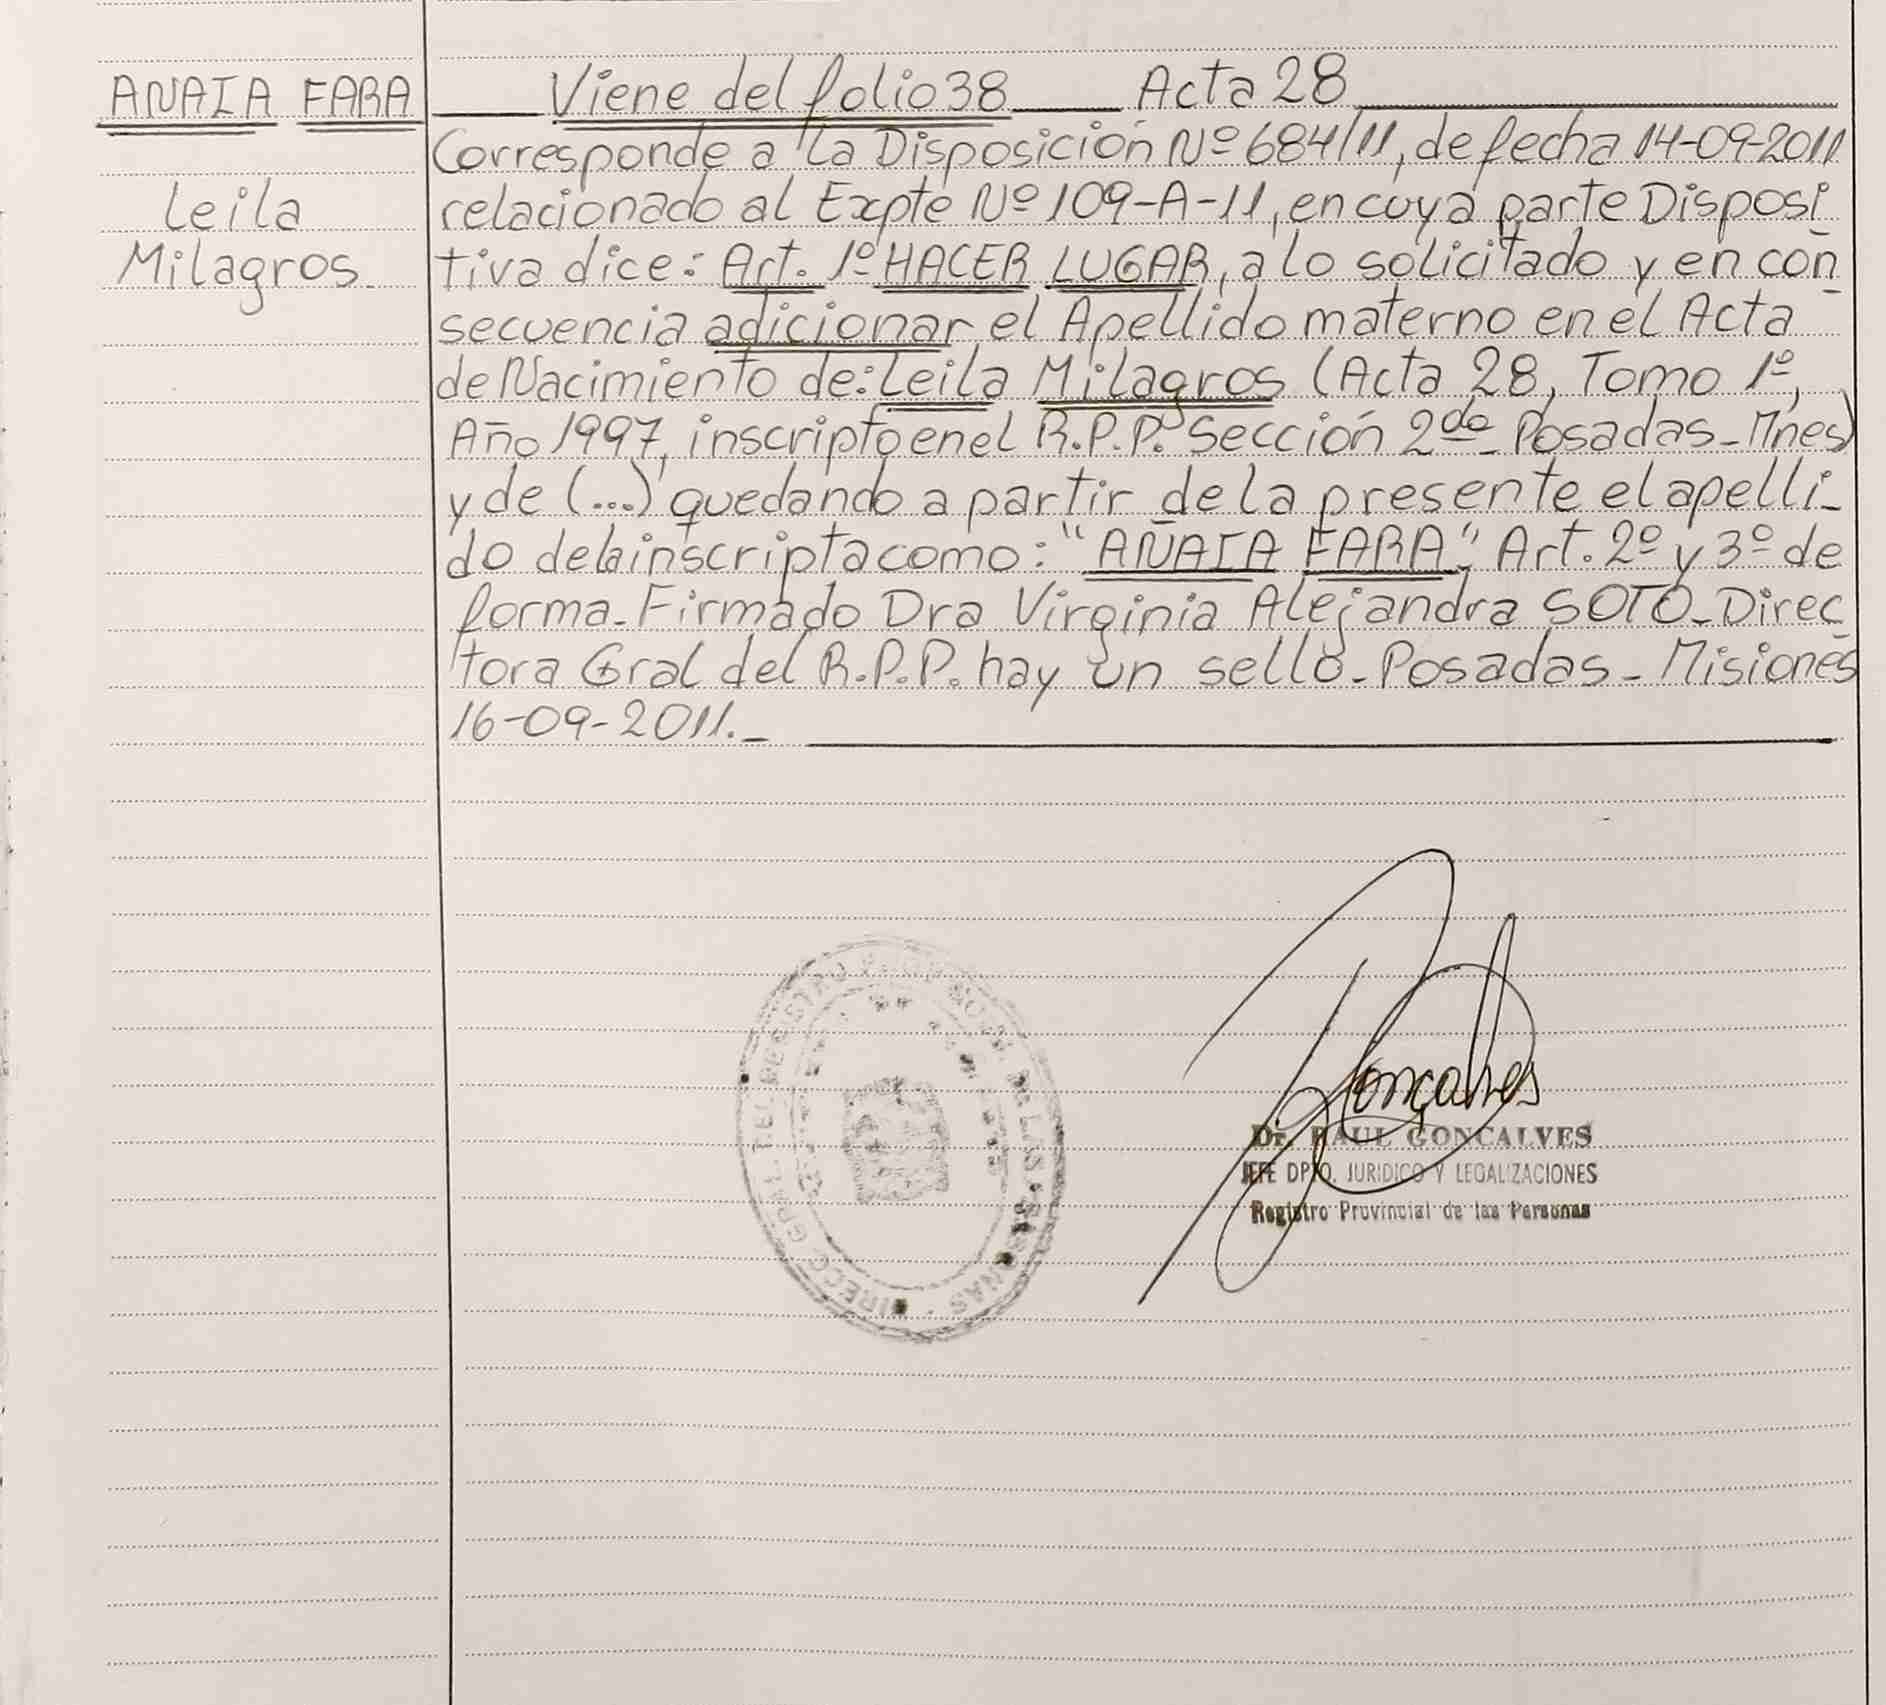 ANAIA FARA
Leila
Milagros.
Viene del folio 38 Acta 28
Corresponde a la Disposición Nº 684/11, de fecha 14-09-2011
relacionado al Expte Nº 109-A-11, en cuya parte Disposi
tiva dice: Art. 1º HACER LUGAR, a lo solicitado y en con
secuencia adicionar el Apellido materno en el Acta
de Nacimiento de: Leila Milagros (Acta 28, Tomo 1º,
Año 1997, inscripto en el R.P.P. Sección 2da Posadas-Mnes)
y de (...) quedando a partir de la presente el apelli-
do de la inscripta como: "AÑAIA FARA", Art. 2º y 3º de
forma. Firmado Dra Virginia Alejandra SOTO-Direc
tora Gral del R.P.P. hay un sello-Posadas-Misiones
16-09-2011.-
DIRECC. GRAL. DEL REGISTRO PROV. DE LAS PERSONAS
Gonçalves
Dr. RAUL GONCALVES
JEFE DPTO. JURIDICO Y LEGALIZACIONES
Registro Provincial de las Personas